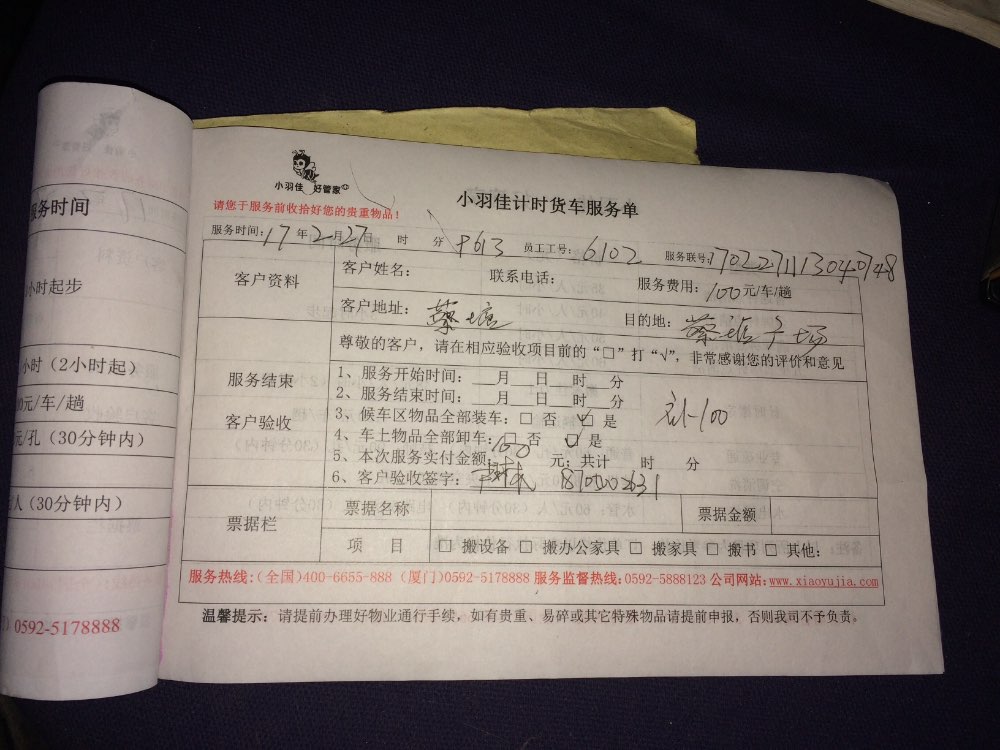 服务时间
小时起步
小时（2小时起）
0元/车/趟
元/孔（30分钟内）
人（30分钟内）
0592-5178888
小羽佳 好管家
小羽佳计时货车服务单
请您于服务前收拾好您的贵重物品！
服务时间：17年2月27日 时 分 P613 员工工号：6102 服务联号：
客户资料 客户姓名： 联系电话： 服务费用：100元/车/趟
客户地址：蔡塘 目的地：蔡塘广场
尊敬的客户，请在相应验收项目前的“□”打“√”，非常感谢您的评价和意见
服务结束 客户验收
1、服务开始时间：＿＿月＿＿日 时 分
2、服务结束时间：＿＿月＿＿日 时 分
3、候车区物品全部装车：□ 否 ☑ 是 补-100
4、车上物品全部卸车：□ 否 ☑ 是
5、本次服务实付金额：100元；共计 时 分
6、客户验收签字：
票据栏 票据名称 票据金额
项 目 □ 搬设备 □ 搬办公家具 □ 搬家具 □ 搬书 □ 其他：
服务热线：（全国）400-6655-888（厦门）0592-5178888 服务监督热线：0592-5888123 公司网站：www.xiaoyujia.com
温馨提示：请提前办理好物业通行手续，如有贵重、易碎或其它特殊物品请提前申报，否则我司不予负责。